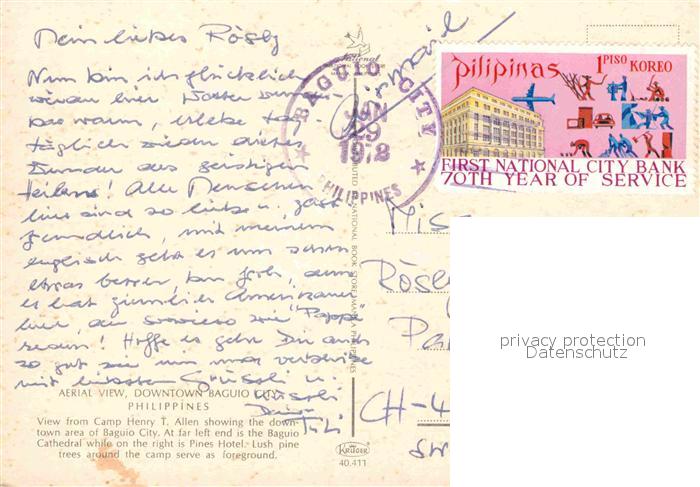 Mein liebes Rösly
Nun bin ich glücklich
wieder hier
warm, erlebe tag-
täglich wieder dieses
Wunder des geistigen
Heilens! Alle Menschen
hier sind so liebe u. gast-
freundlich, mit meinem
englisch geht es nun schon
etwas besser, bin froh, denn
es hat ziemlich Amerikaner
hier, die sowieso wie "Papp"
reden! Hoffe es gehe Dir auch
so gut wie nur
mit liebsten Grüssli u.
Küssli
Deine
Airmail
BAGUIO CITY
JUN
29
1972
PHILIPPINES
Pilipinas
1 PISO KOREO
FIRST NATIONAL CITY BANK
70TH YEAR OF SERVICE
Miss
Rösly
CH-4
SW
privacy protection
Datenschutz
AERIAL VIEW, DOWNTOWN BAGUIO CITY
PHILIPPINES
View from Camp Henry T. Allen showing the down-
town area of Baguio City. At far left end is the Baguio
Cathedral while on the right is Pines Hotel. Lush pine
trees around the camp serve as foreground.
KRÜGER
40.411